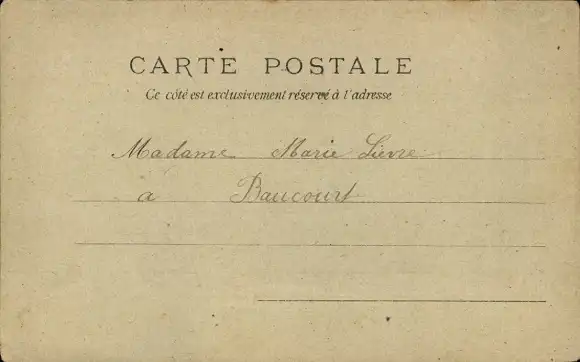 CARTE POSTALE
Ce côté est exclusivement réservé à l'adresse
Madame Marie Lièvre
a Baucourt